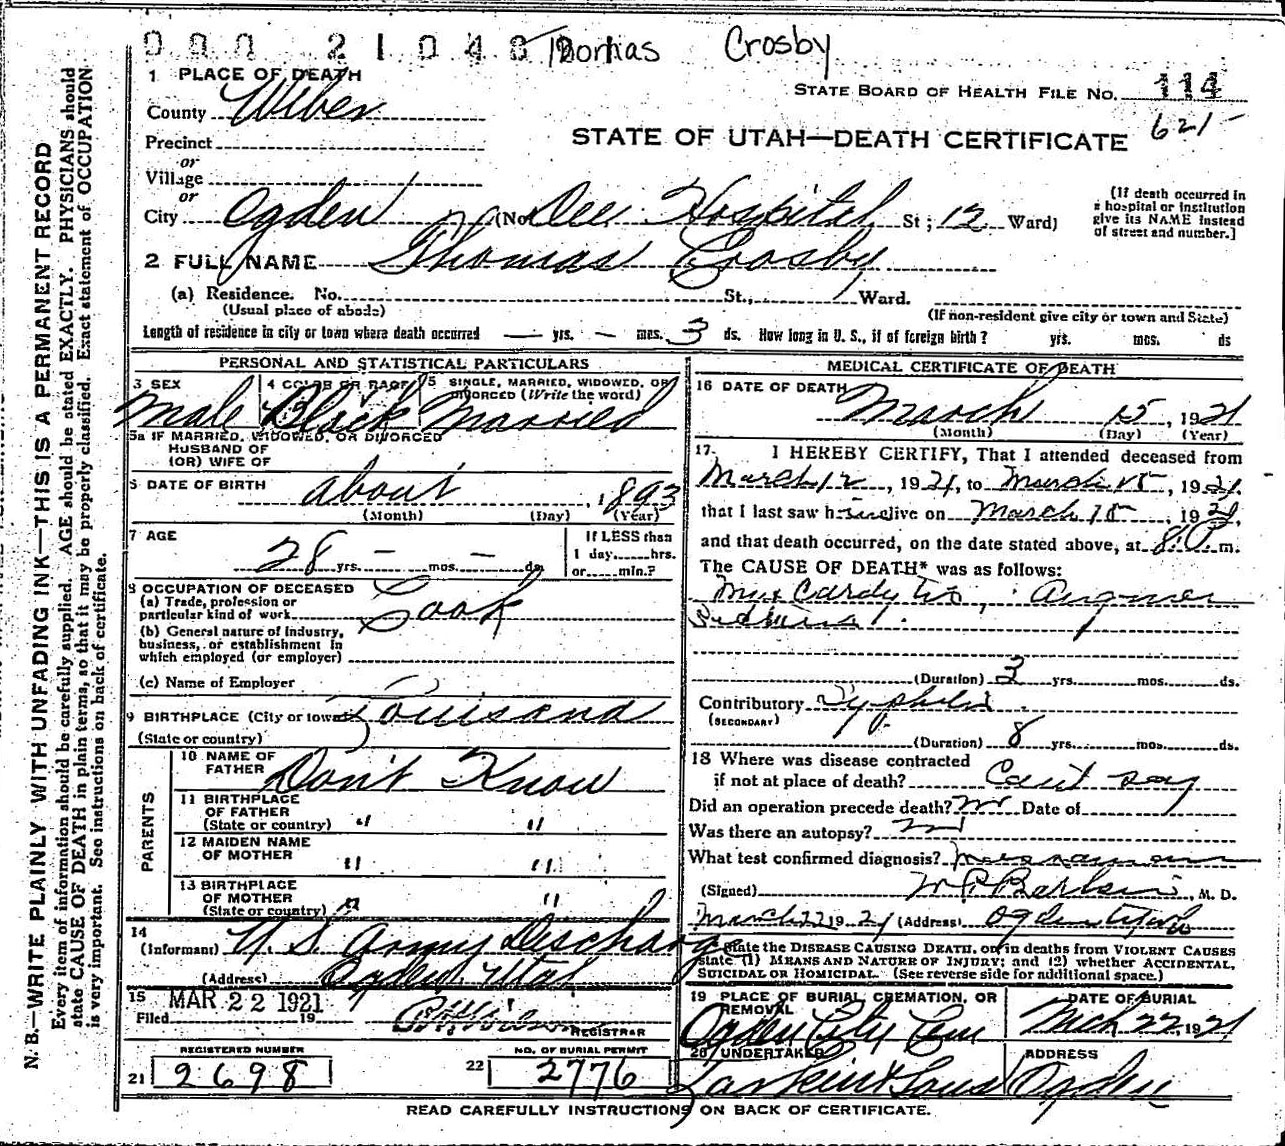 000 21048 Thomas Crosby
1 PLACE OF DEATH
STATE BOARD OF HEALTH FILE No. 114
County Weber
621
STATE OF UTAH—DEATH CERTIFICATE
Precinct
or
Village
or
City Ogden (No Dee Hospital St; 12 Ward)
(If death occurred in
a hospital or institution
give its NAME instead
of street and number.]
2 FULL NAME Thomas Crosby
(a) Residence. No. St., Ward.
(Usual place of abode)
(If non-resident give city or town and State)
Length of residence in city or town where death occurred — yrs. — mos. 3 ds. How long in U. S., if of foreign birth? yrs. mos. ds
PERSONAL AND STATISTICAL PARTICULARS
3 SEX
Male
4 COLOR OR RACE
Black
5 SINGLE, MARRIED, WIDOWED, OR
DIVORCED (Write the word)
Married
5a IF MARRIED, WIDOWED, OR DIVORCED
HUSBAND OF
(OR) WIFE OF
6 DATE OF BIRTH about , 1893
(Month) (Day) (Year)
7 AGE
28 yrs. — mos. — ds.
If LESS than
1 day,......hrs.
or......min.?
8 OCCUPATION OF DECEASED
(a) Trade, profession or
particular kind of work Cook
(b) General nature of industry,
business, or establishment in
which employed (or employer)
(c) Name of Employer
9 BIRTHPLACE (City or town) Louisana
(State or country)
PARENTS
10 NAME OF
FATHER Don't Know
11 BIRTHPLACE
OF FATHER
(State or country) " "
12 MAIDEN NAME
OF MOTHER " "
13 BIRTHPLACE
OF MOTHER
(State or country) " "
14
(Informant) U. S. Army Discharge
(Address) Ogden Utah
15 MAR 22 1921
Filed 19
REGISTRAR
REGISTERED NUMBER
21 2698
NO. OF BURIAL PERMIT
22 2776
MEDICAL CERTIFICATE OF DEATH
16 DATE OF DEATH
March 15, 1921
(Month) (Day) (Year)
17. I HEREBY CERTIFY, That I attended deceased from
March 12, 1921, to March 15, 1921.
that I last saw him alive on March 15, 1921,
and that death occurred, on the date stated above, at 8 P. m.
The CAUSE OF DEATH* was as follows:
(Duration) 3 yrs. mos. ds.
Contributory Syphilis.
(SECONDARY)
(Duration) 8 yrs. mos. ds.
18 Where was disease contracted
if not at place of death? Can't say
Did an operation precede death? no Date of
Was there an autopsy? no
What test confirmed diagnosis?
(Signed) M. D.
March 22 1921 (Address) Ogden Utah
* State the DISEASE CAUSING DEATH, or in deaths from VIOLENT CAUSES
state (1) MEANS AND NATURE OF INJURY; and (2) whether ACCIDENTAL,
SUICIDAL OR HOMICIDAL. (See reverse side for additional space.)
19 PLACE OF BURIAL, CREMATION, OR
REMOVAL
Ogden City Cem
DATE OF BURIAL
Mch 22, 1921
20 UNDERTAKER
Larkin & Sons
ADDRESS
Ogden
READ CAREFULLY INSTRUCTIONS ON BACK OF CERTIFICATE.
N. B.—WRITE PLAINLY WITH UNFADING INK—THIS IS A PERMANENT RECORD
Every item of information should be carefully supplied. AGE should be stated EXACTLY. PHYSICIANS should
state CAUSE OF DEATH in plain terms, so that it may be properly classified. Exact statement of OCCUPATION
is very important. See instructions on back of certificate.